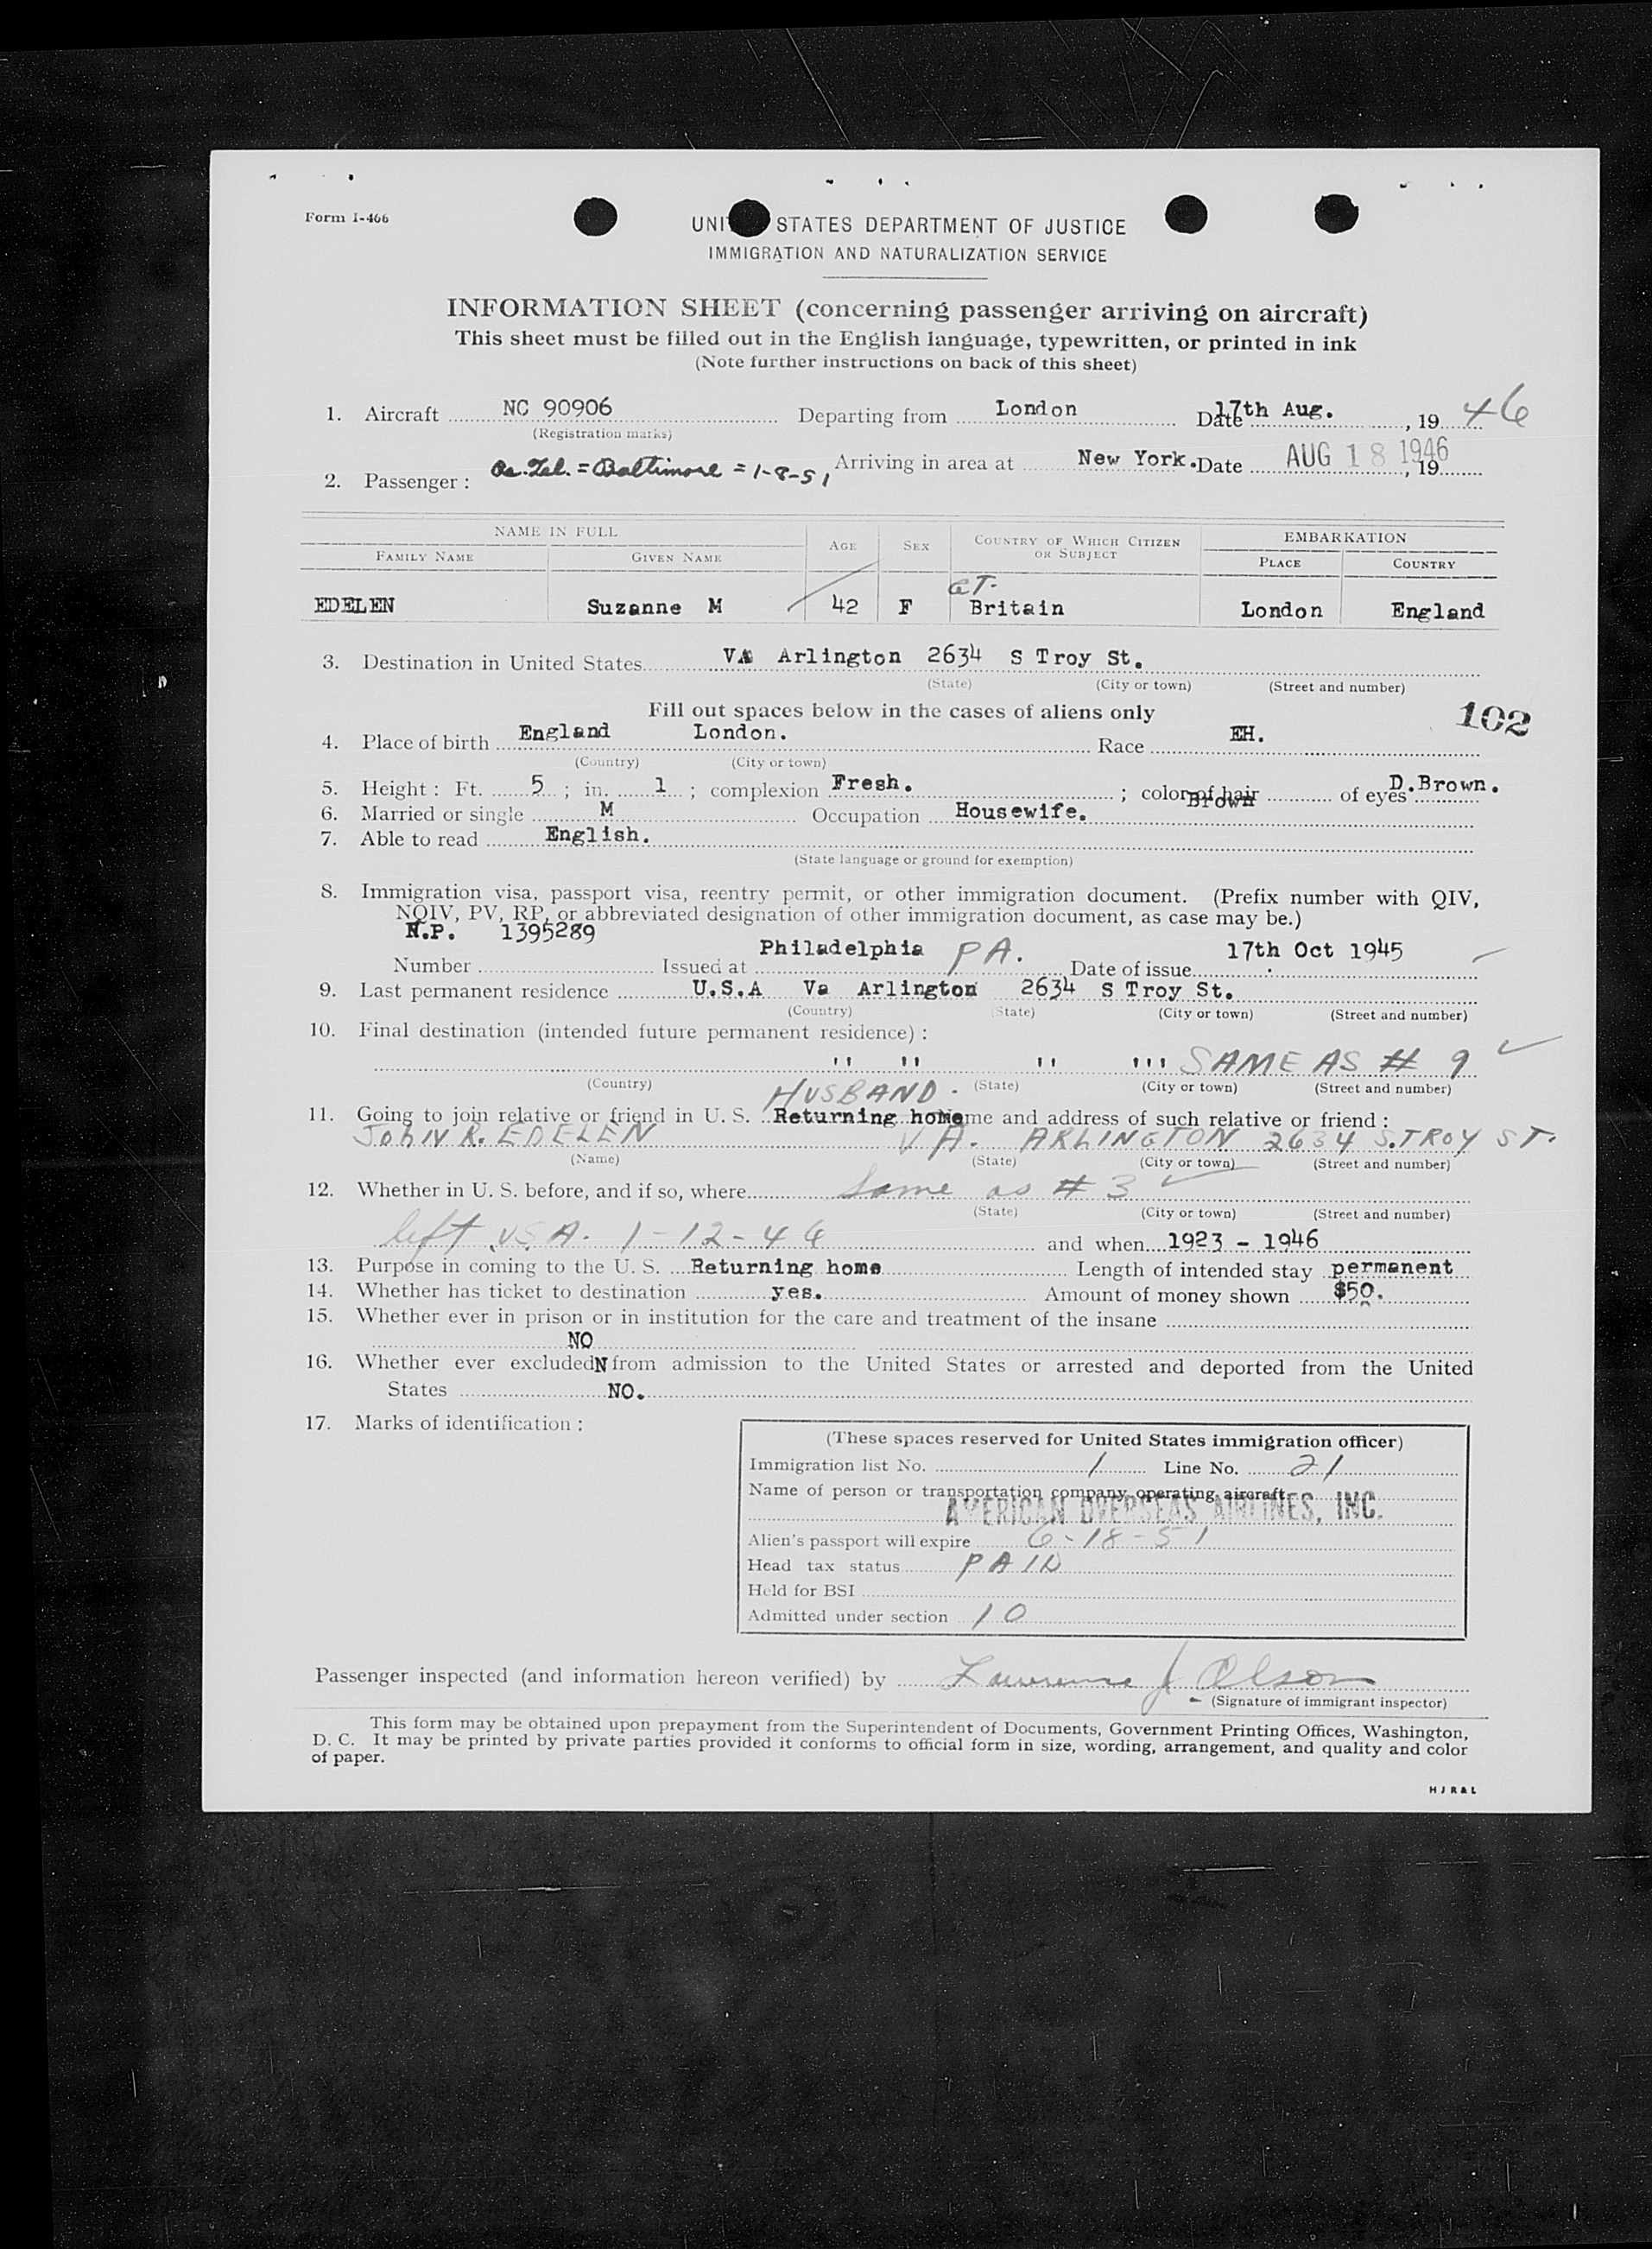 Form I-466
UNI STATES DEPARTMENT OF JUSTICE
IMMIGRATION AND NATURALIZATION SERVICE
INFORMATION SHEET (concerning passenger arriving on aircraft)
This sheet must be filled out in the English language, typewritten, or printed in ink
(Note further instructions on back of this sheet)
1. Aircraft NC 90906 Departing from London Date 17th Aug. , 19 46
(Registration marks)
= Baltimore = 1-8-51 Arriving in area at New York. Date AUG 18 1946 , 19
2. Passenger :
NAME IN FULL AGE SEX COUNTRY OF WHICH CITIZEN OR SUBJECT EMBARKATION
FAMILY NAME GIVEN NAME PLACE COUNTRY
GT.
EDELEN Suzanne M 42 F Britain London England
3. Destination in United States VA Arlington 2634 S Troy St.
(State) (City or town) (Street and number)
Fill out spaces below in the cases of aliens only
102
4. Place of birth England London. Race EH.
(Country) (City or town)
5. Height : Ft. 5 ; in. 1 ; complexion Fresh. ; color of hair Brown of eyes D.Brown.
6. Married or single M Occupation Housewife.
7. Able to read English.
(State language or ground for exemption)
8. Immigration visa, passport visa, reentry permit, or other immigration document. (Prefix number with QIV,
NQIV, PV, RP, or abbreviated designation of other immigration document, as case may be.)
N.P. 1395289
Number Issued at Philadelphia PA. Date of issue 17th Oct 1945
9. Last permanent residence U.S.A Va Arlington 2634 S Troy St.
(Country) (State) (City or town) (Street and number)
10. Final destination (intended future permanent residence) :
" " " "' SAME AS # 9
(Country) (State) (City or town) (Street and number)
HUSBAND.
11. Going to join relative or friend in U. S. Returning home Name and address of such relative or friend :
JOHN R. EDELEN VA. ARLINGTON 2634 S. TROY ST.
(Name) (State) (City or town) (Street and number)
12. Whether in U. S. before, and if so, where Same as # 3
(State) (City or town) (Street and number)
left U.S.A. 1-12-46 and when 1923 - 1946
13. Purpose in coming to the U. S. Returning home Length of intended stay permanent
14. Whether has ticket to destination yes. Amount of money shown $50.
15. Whether ever in prison or in institution for the care and treatment of the insane
NO
16. Whether ever excluded N from admission to the United States or arrested and deported from the United
States NO.
17. Marks of identification :
(These spaces reserved for United States immigration officer)
Immigration list No. 1 Line No. 21
Name of person or transportation company operating aircraft
AMERICAN OVERSEAS AIRLINES, INC.
Alien's passport will expire 6-18-51
Head tax status PAID
Held for BSI
Admitted under section 10
Passenger inspected (and information hereon verified) by Lawrence J Olson
(Signature of immigrant inspector)
This form may be obtained upon prepayment from the Superintendent of Documents, Government Printing Offices, Washington,
D. C. It may be printed by private parties provided it conforms to official form in size, wording, arrangement, and quality and color
of paper.
H J R & L